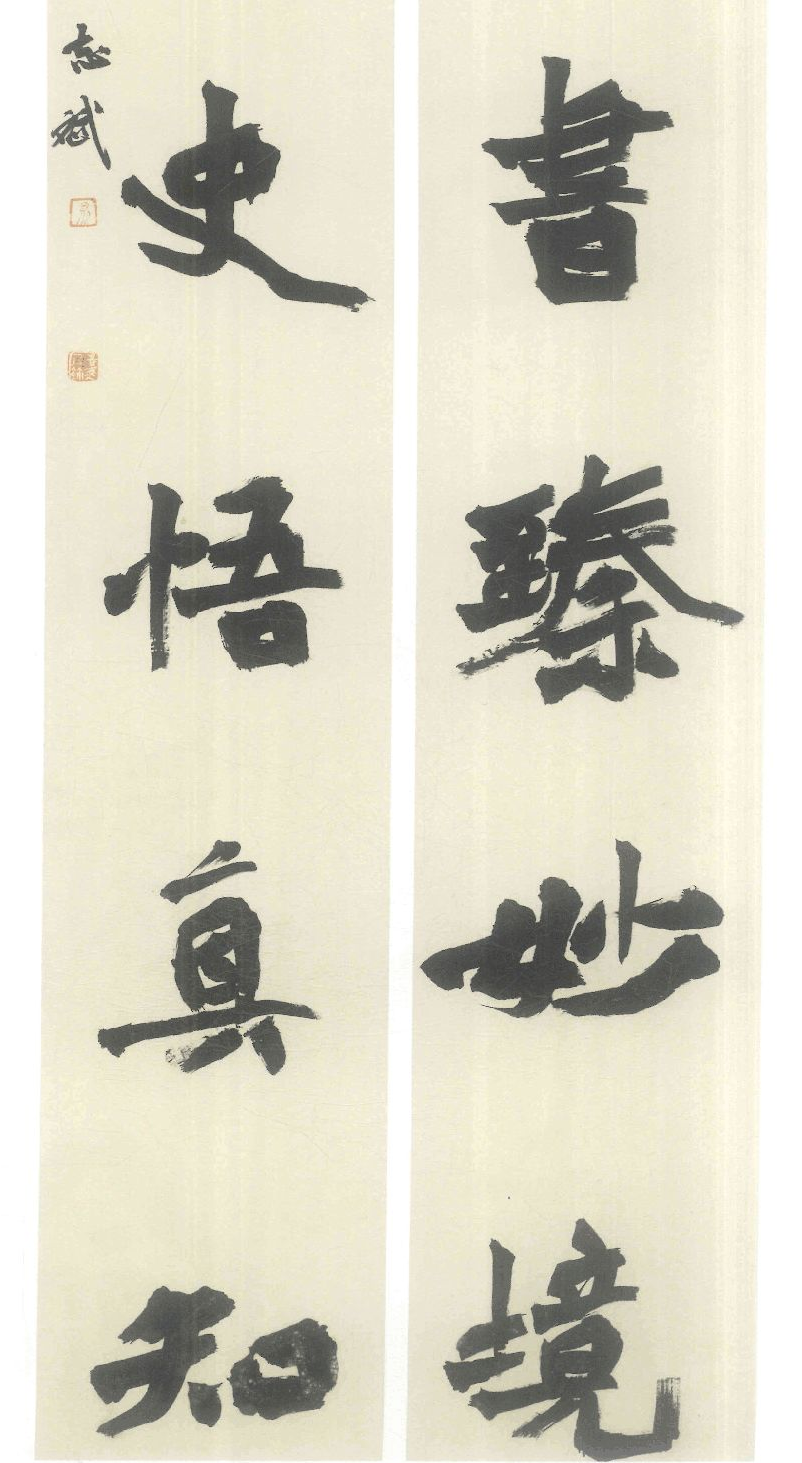 書臻妙境
史悟真知
志斌